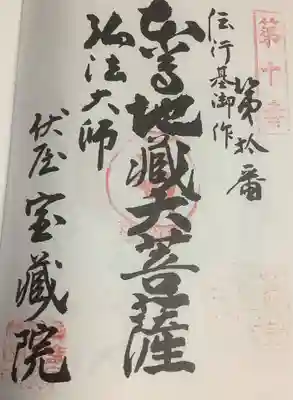 第十番
第拾番
伝行基御作
本尊地蔵大菩薩
弘法大師
伏屋宝蔵院